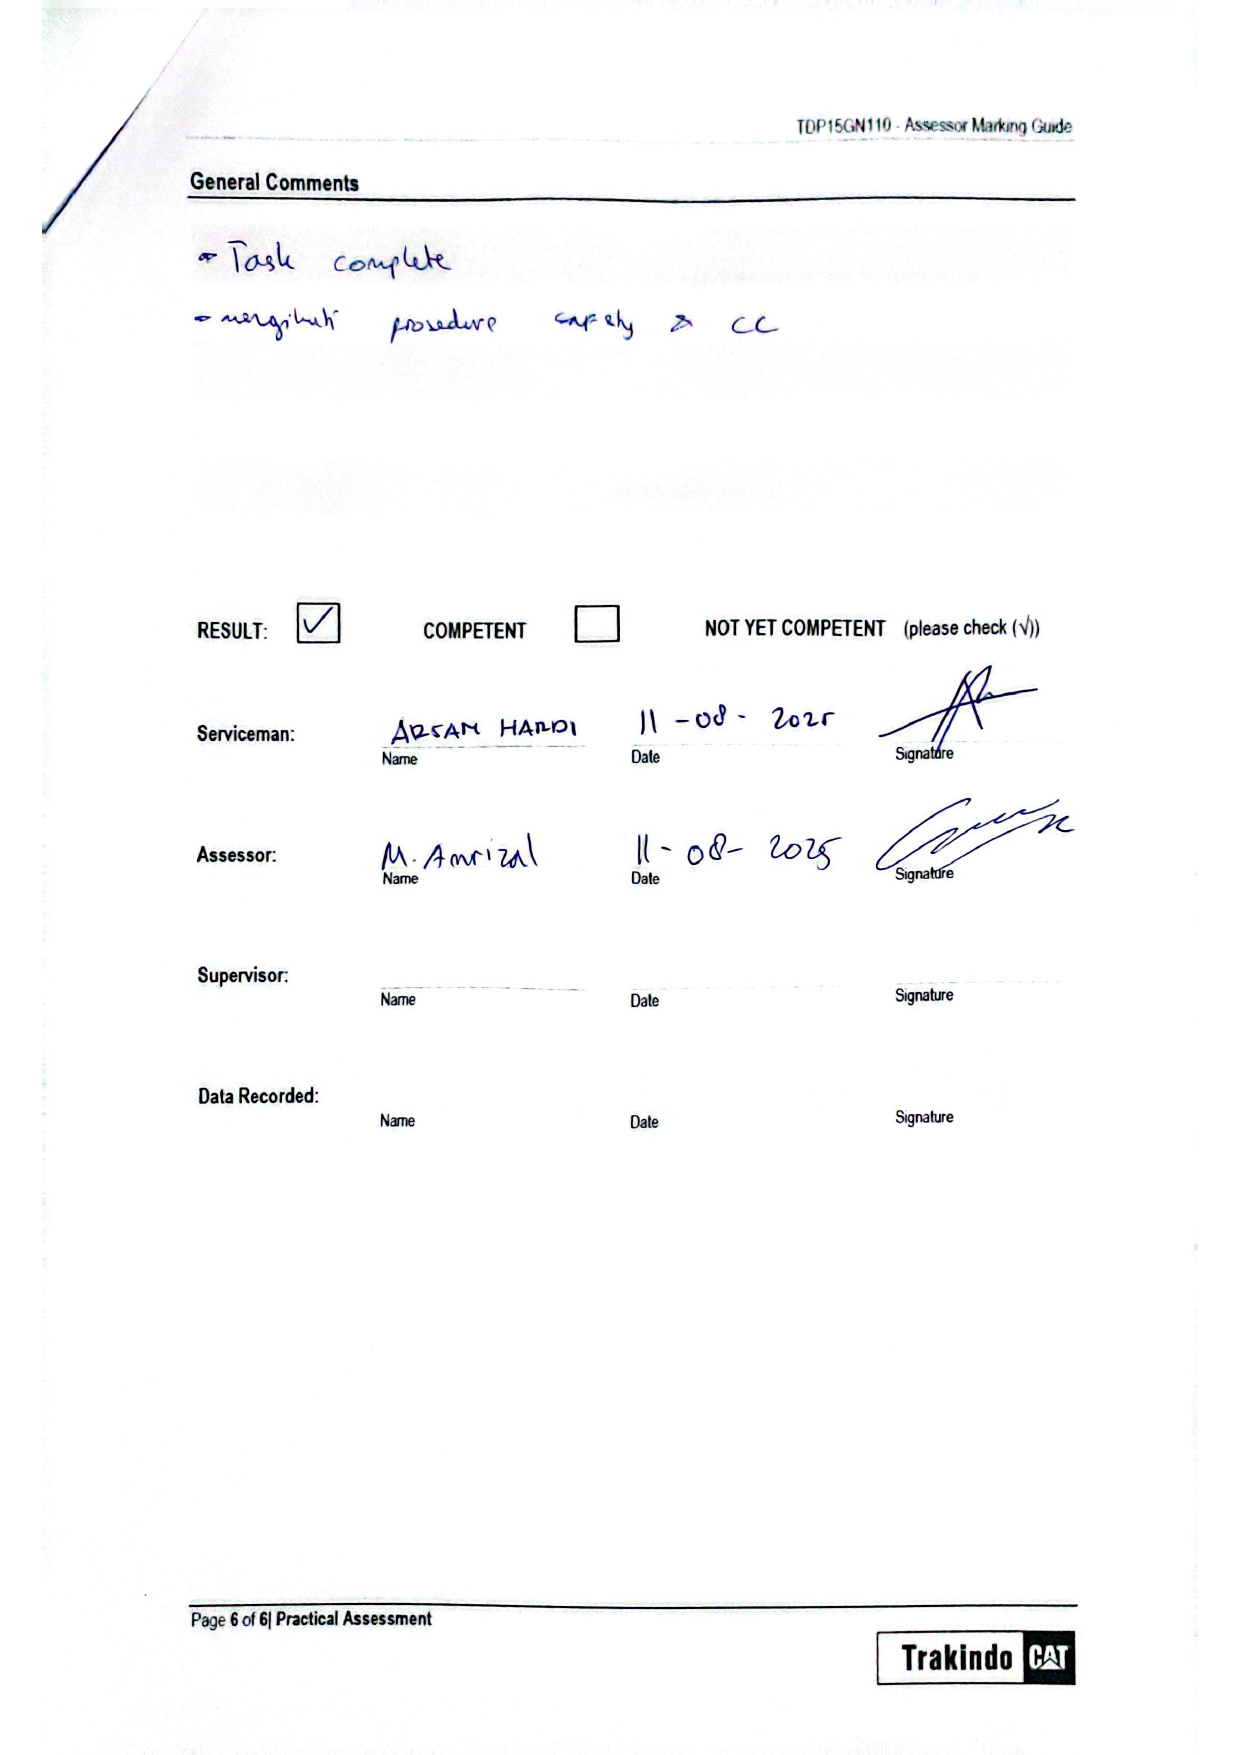 TDP15GN110 - Assessor Marking Guide
General Comments
- Task complete
- mengikuti prosedure safety & CC
RESULT: ✓ COMPETENT NOT YET COMPETENT (please check (√))
Serviceman: ARSAM HARDI 11 - 08 - 2025
Name Date Signature
Assessor: M. Amrizal 11 - 08 - 2025
Name Date Signature
Supervisor:
Name Date Signature
Data Recorded:
Name Date Signature
Page 6 of 6| Practical Assessment
Trakindo CAT